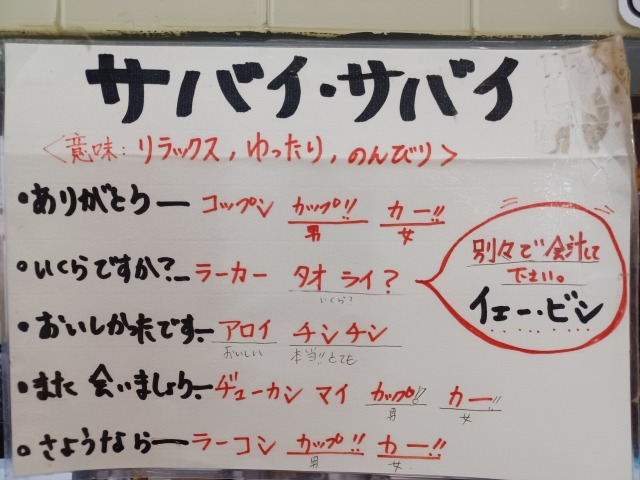 サバイ・サバイ
<意味:リラックス,ゆったり,のんびり>
・ありがとう― コップン カップ!! カー!!
男 女
・いくらですか?― ラーカー タオ ライ?
いくら?
別々で会計して
下さい。
イェー・ビン
・おいしかったです― アロイ チンチン
おいしい 本当!!とても
・また会いましょう― ヂューカン マイ カップ!! カー!!
男 女
・さようなら― ラーコン カップ!! カー!!
男 女